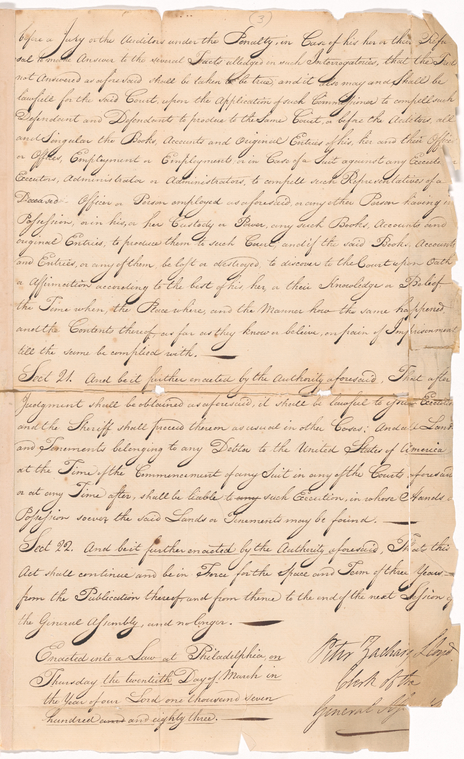 (3)
before a Jury or the Auditors under the Penalty, in Case of his her or their Refu
sal to make Answer to the several Facts alledged in such Interrogatories, that the Fact
not Answered as aforesaid shall be taken to be true, and it also may and shall be
lawfull for the said Court, upon the Application of such Commissioner to compell such
Defendant and Defendants to produce to the same Court, or before the Auditors, all
and Singular the Books, Accounts and Original Entries of his, her and their Office
or Offices, Employment or Employments, or in Case of a Suit against any Executor
Executors, Administrator or Administrators, to compell such Representatives of a
Deceased Officer or Person employed as aforesaid or any other Person having in
Possession, or in his, or her Custody or Power, any such Books, Accounts and
original Entries, to produce them to such Court and if the said Books, Accounts
and Entries, or any of them, be lost or destroyed, to discover to the Court upon Oath
or Affirmation according to the best of his her, or their Knowledge or Beleef
the Time when, the Place where, and the Manner how the same happened
and the Contents thereof as far as they know or believe, on pain of Imprisonment
till the same be complied with.
Sect 21. And be it further enacted by the Authority aforesaid, That after
Judgment shall be obtained as aforesaid, it shall be lawful to issue Execution
and the Sheriff shall proceed therein as usual in other Cases; And all Lands
and Tenements belonging to any Debtor to the United States of America
at the Time of the Commencement of any Suit in any of the Courts aforesaid
or at any Time after, shall be liable to any such Execution, in whose Hands or
Possession soever the said Lands or Tenements may be found.
Sect 22. And be it further enacted by the Authority aforesaid, That this
Act shall continue and be in Force for the Space and Term of three Years
from the Publication thereof and from thence to the end of the next Session of
the General Assembly, and no longer.
Enacted into a Law at Philadelphia, on
Thursday the twentieth Day of March in
the Year of our Lord one thousand seven
hundred and and eighty three.
Peter Zachary Lloyd
Clerk of the
General Ass